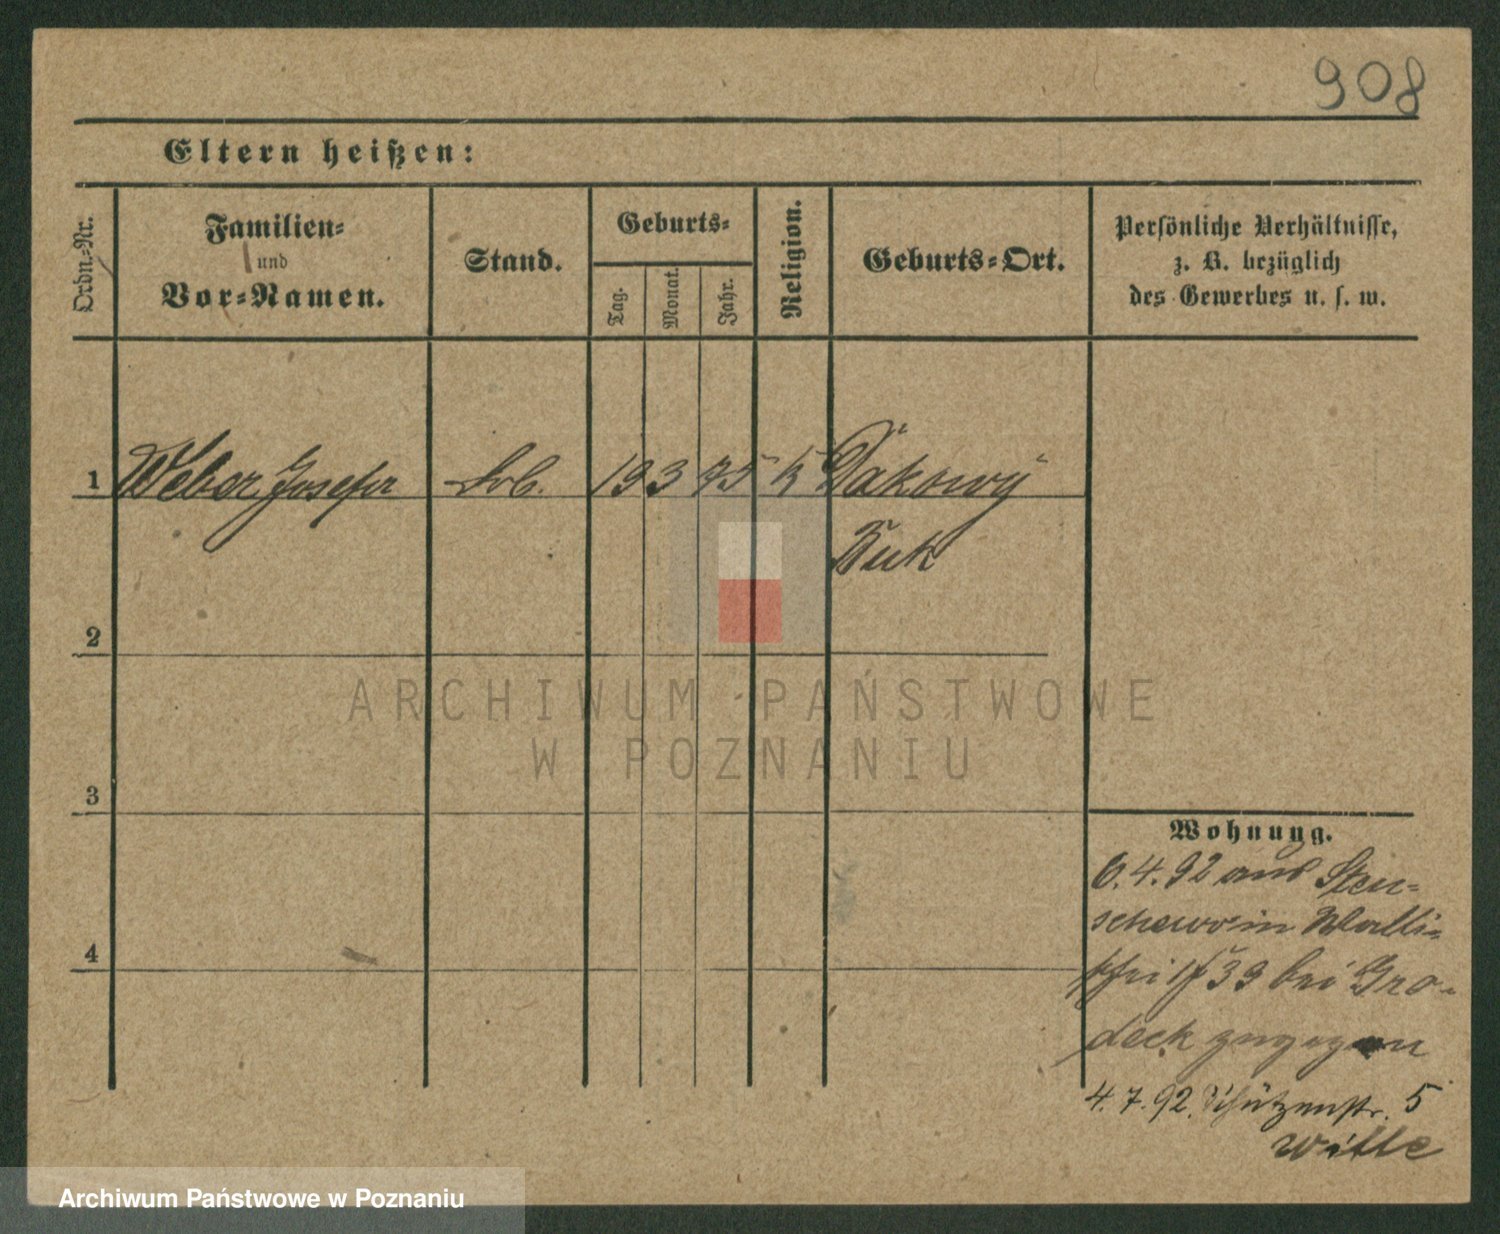 908
Eltern heißen:
Ordn.-Nr.
Familien-
und
Vor-Namen.
Stand.
Geburts-
Tag.
Monat.
Jahr.
Religion.
Geburts-Ort.
Persönliche Verhältnisse,
z. B. bezüglich
des Gewerbes u. s. w.
1 Weber Josefa 19 3 75 k Dakowy
Buk
2
3
4
Wohnung.
6.4.92 aus Sten-
schewo in Walli-
39 bei Gro-
deck zugezogen
4.7.92. Schützenstr. 5
Witte
ARCHIWUM PAŃSTWOWE
W POZNANIU
Archiwum Państwowe w Poznaniu